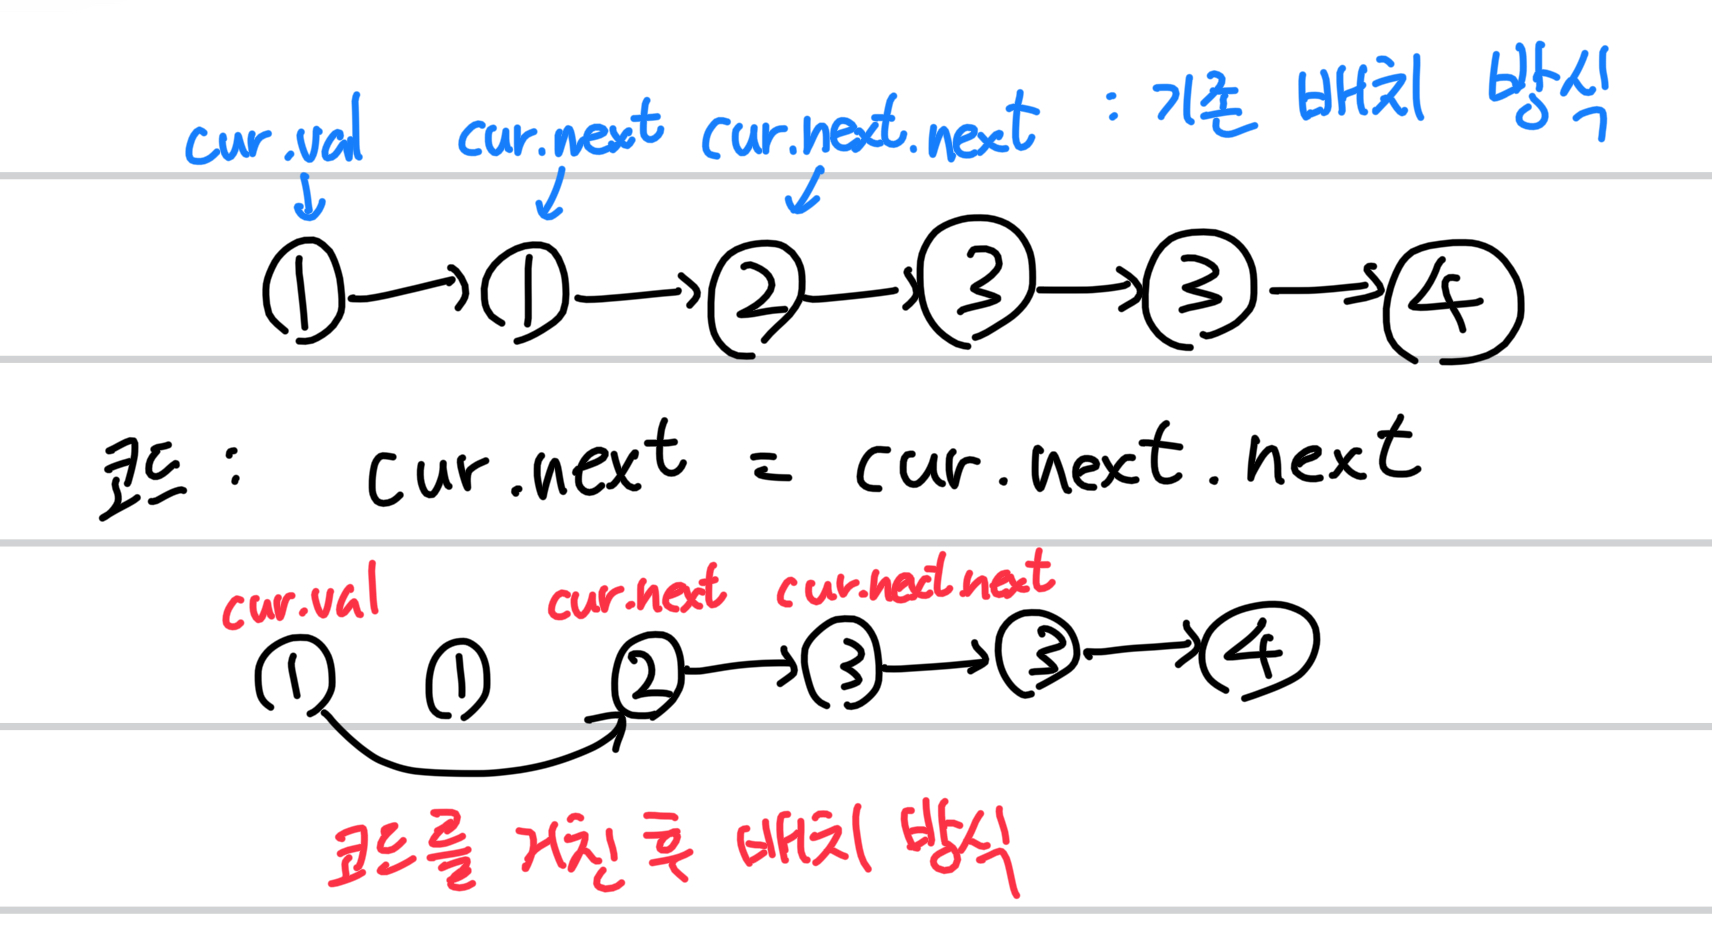 cur.val cur.next cur.next.next : 기존 배치 방식
1 1 2 3 3 4
코드 : cur.next = cur.next.next
cur.val cur.next cur.next.next
1 1 2 3 3 4
코드를 거친 후 배치 방식